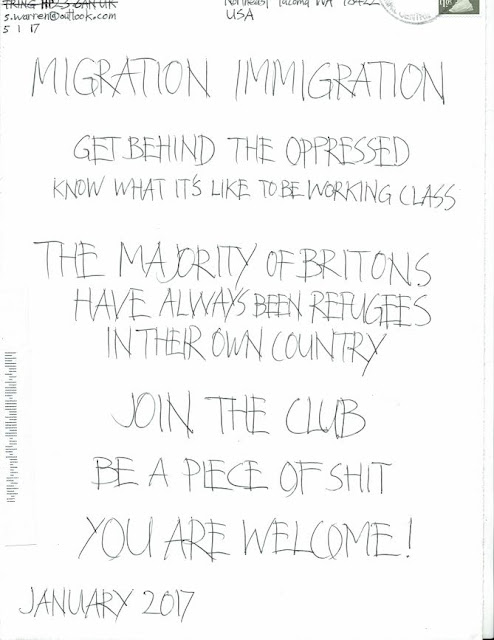 TRING
s.warren@outlook.com
5 1 17
Northeast Tacoma WA 98422
USA
MIGRATION IMMIGRATION
GET BEHIND THE OPPRESSED
KNOW WHAT IT'S LIKE TO BE WORKING CLASS
THE MAJORITY OF BRITONS
HAVE ALWAYS BEEN REFUGEES
IN THEIR OWN COUNTRY
JOIN THE CLUB
BE A PIECE OF SHIT
YOU ARE WELCOME!
JANUARY 2017